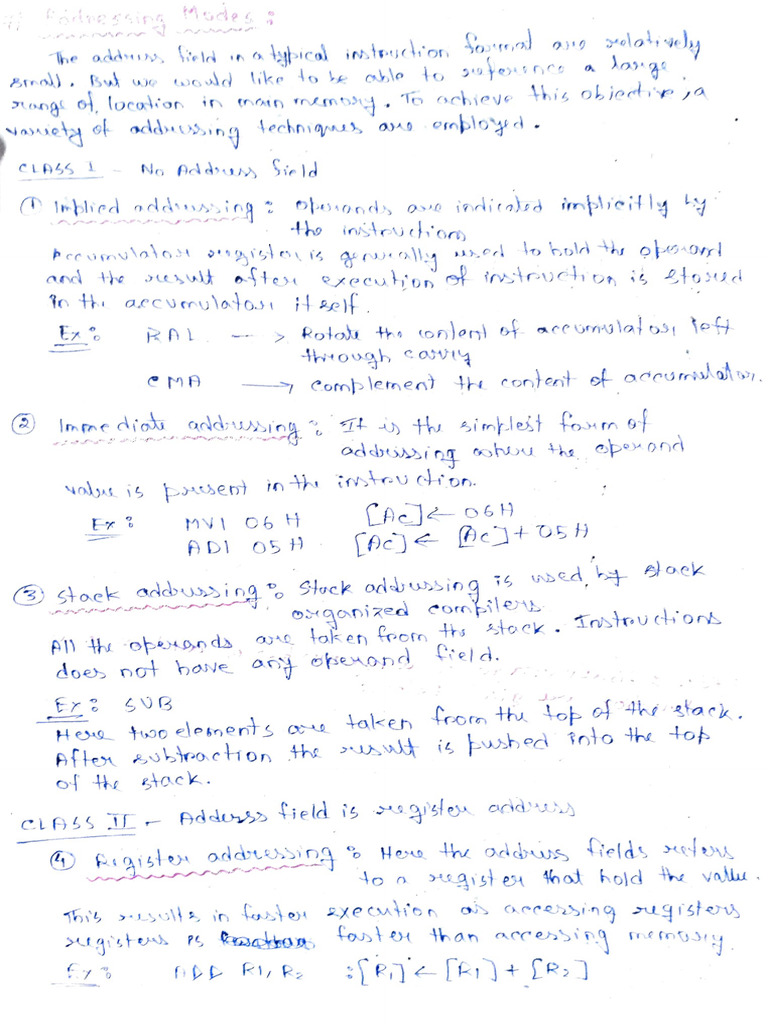 Addressing Modes :
The address field in a typical instruction format are relatively
small. But we would like to be able to reference a large
range of location in main memory. To achieve this objective, a
variety of addressing techniques are employed.
CLASS I - No Address field
① Implied addressing : operands are indicated implicitly by
the instruction
Accumulator register is generally used to hold the operand
and the result after execution of instruction is stored
in the accumulator itself.
Ex : RAL --> Rotate the content of accumulator left
through carry
CMA → complement the content of accumulator.
② Immediate addressing : It is the simplest form of
addressing where the operand
value is present in the instruction.
Ex : MVI 06 H [AC] ← 06H
ADI 05 H [AC] ← [AC] + 05 H
③ Stack addressing : Stack addressing is used by stack
organized compilers
All the operands are taken from the stack. Instructions
does not have any operand field.
Ex : SUB
Here two elements are taken from the top of the stack.
After subtraction the result is pushed into the top
of the stack.
CLASS II - Adderss field is register address
④ Register addressing : Here the address fields refers
to a register that hold the value.
This results in faster execution as accessing registers
registers is faster than accessing memory
Ex : ADD R1, R2 : [R1] ← [R1] + [R2]